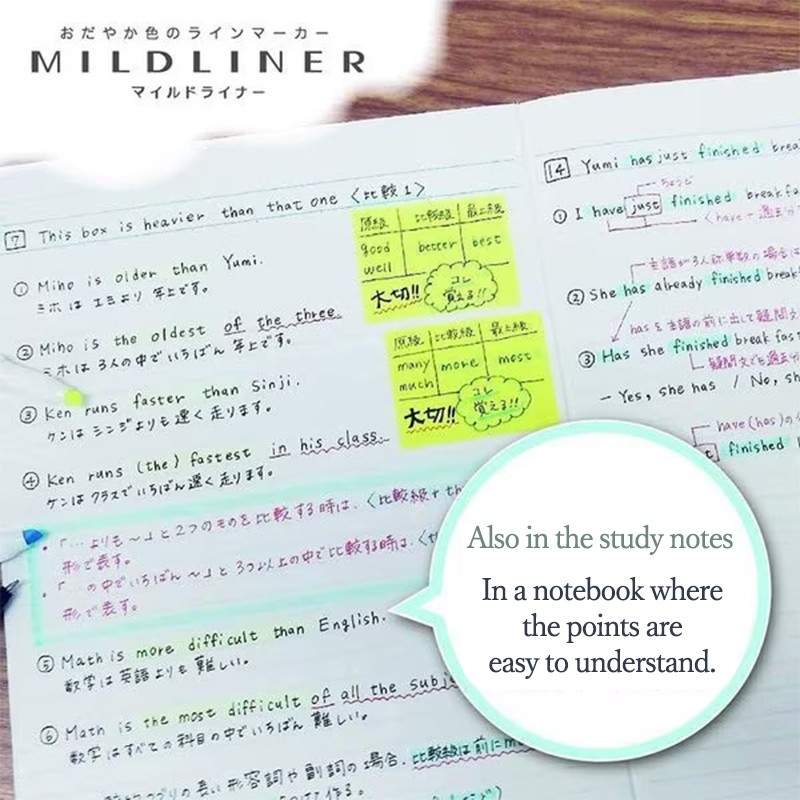 おだやか色のラインマーカー
MILDLINER
マイルドライナー
7 This box is heavier than that one 〈比較1〉
① Miho is older than Yumi.
ミホはユミより年上です。
② Miho is the oldest of the three.
ミホは3人の中でいちばん年上です。
③ Ken runs faster than Sinji.
ケンはシンジよりも速く走ります。
④ Ken runs (the) fastest in his class.
ケンはクラスでいちばん速く走ります。
・「…よりも〜」と2つのものを比較する時は、〈比較級+th
形で表す。
・「…の中でいちばん〜」と3つ以上の中で比較する時は、〈th
形で表す。
⑤ Math is more difficult than English.
数学は英語よりも難しい。
⑥ Math is the most difficult of all the subj
数学はすべての科目の中でいちばん難しい。
つづりの長い形容詞や副詞の場合、比較級は前にm
原級 比較級 最上級
good better best
well
大切!! コレ
覚える!!
原級 比較級 最上級
many more most
much
大切!! コレ
覚える!!
14 Yumi has just finished brea
ちょうど
① I have just finished breakfa
〈have+過去分
主語が3人称単数の場合は
② She has already finished break
hasを主語の前に出して疑問文
③ Has she finished breakfas
疑問文でも過去分
– Yes, she has / No, sh
have(has)の
finished
Also in the study notes
In a notebook where
the points are
easy to understand.